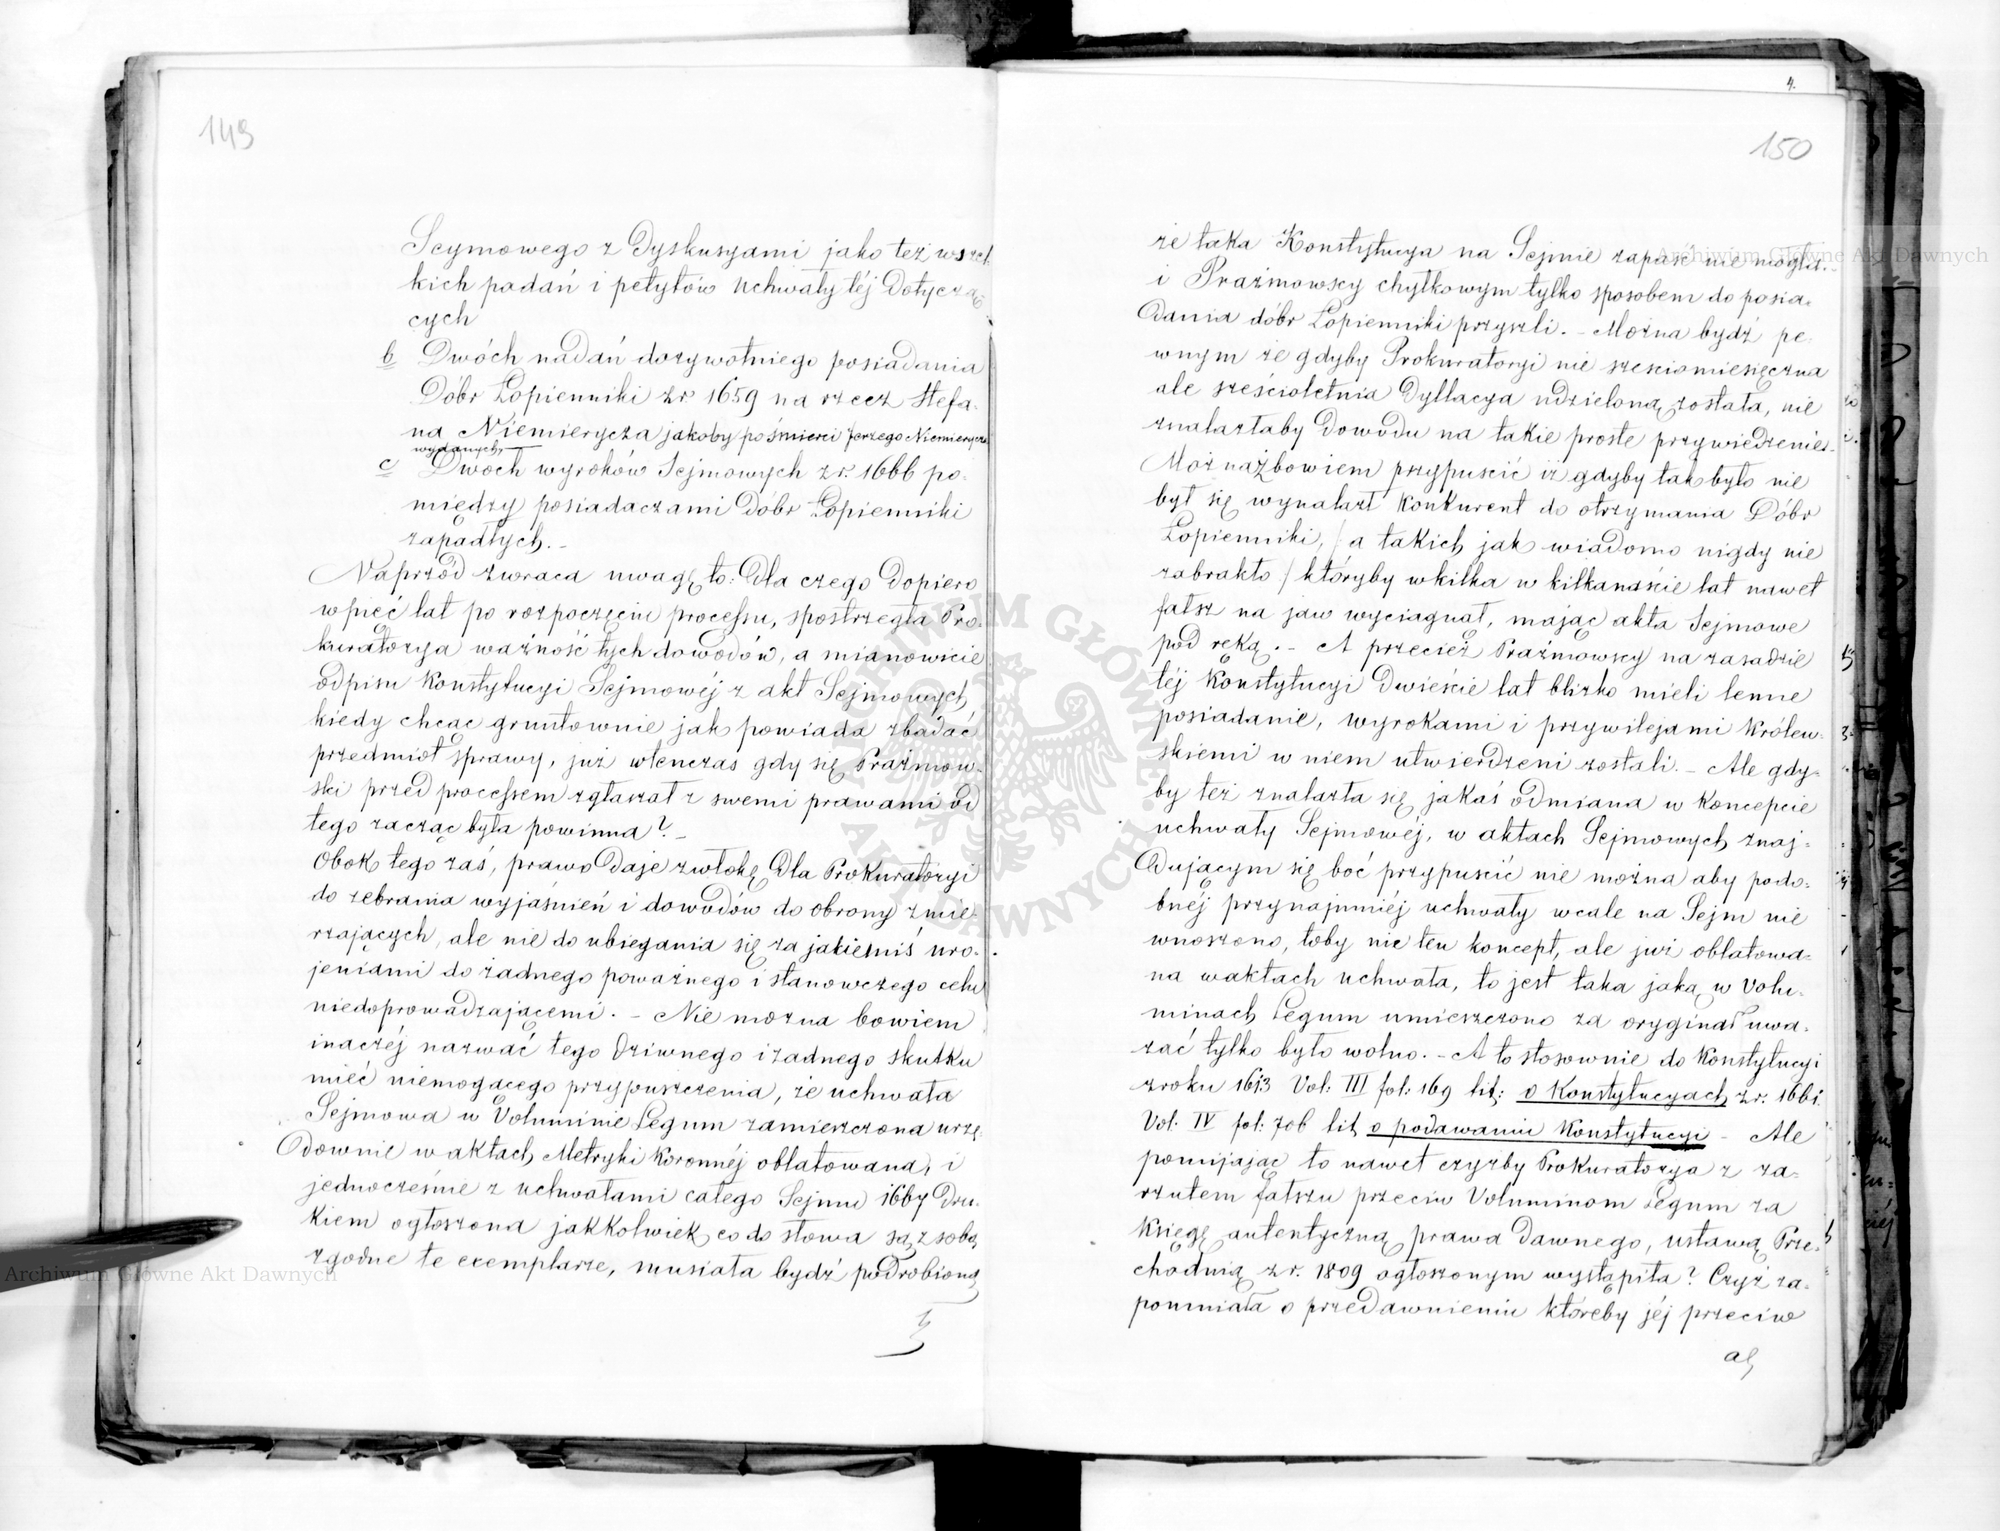 149
Seymowego z Dyskusyami jako też wszel
kich podań i petytów uchwały téj dotyczą
cych
b Dwóch nadań dożywotniego posiadania
Dóbr Łopienniki z r. 1659 na rzecz Stefa-
na Niemierycza jakoby po śmierci Jerzego Niemierycza
wydanych,
c Dwóch wyroków Sejmowych z r. 1666 po-
między posiadaczami Dóbr Łopienniki
zapadłych. -
Naprzód zwraca uwagę to: Dla czego dopiero
w pięć lat po rozpoczęciu processu, spostrzegła Pro-
kuratorya ważność tych dowodów, a mianowicie
odpisu Konstytucyi Sejmowéj z akt Sejmowych,
kiedy chcąc gruntownie jak powiada zbadać
przedmiot sprawy, już wtenczas gdy się Prażmow-
ski przed processem zgłaszał z swemi prawami od
tego zacząć była powinna? -
Obok tego zaś, prawo daje zwłokę dla Prokuratoryi
do zebrania wyjaśnień i dowodów do obrony zmie-
rzających, ale nie do ubiegania się za jakiemiś uro-
jeniami do żadnego poważnego i stanowczego celu
niedoprowadzającemi. - Nie można bowiem
inaczéj nazwać tego dziwnego i żadnego skutku
mieć niemogącego przypuszczenia, że uchwała
Sejmowa w Voluminie Legum zamieszczona urzę-
downie w aktach Metryki Koronnéj oblatowana, i
jednocześnie z uchwałami całego Sejmu 1667 Dru-
kiem ogłoszona jakkolwiek co do słowa są z sobą
zgodne te exemplarze, musiała bydź podrobioną
4.
150
że taka Konstytucya na Sejmie zapaść nie mogła. -
i Prażmowscy chyłkowym tylko sposobem do posia-
dania dóbr Łopienniki przyszli. - Można bydź pe-
wnym że gdyby Prokuratoryi nie sześciomiesięczna
ale sześcioletnia Dyllacya udzieloną została, nie
znalazłaby dowodu na takie proste przywiedzenie -
Możnażbowiem przypuścić iż gdyby tak było nie
był się wynalazł Konkurent do otrzymania Dóbr
Łopienniki, / a takich jak wiadomo nigdy nie
zabrakło / któryby w kilka w kilkanaście lat nawet
fałsz na jaw wyciągnął, mając akta Sejmowe
pod ręką. - A przecież Prażmowscy na zasadzie
téj Konstytucyi dwieście lat blizko mieli lenne
posiadanie, wyrokami i przywilejami Królew-
skiemi w niem utwierdzeni zostali. - Ale gdy-
by też znalazła się jakaś odmiana w Koncepcie
uchwały Sejmowéj, w aktach Sejmowych znaj-
dującym się boć przypuścić nie można aby podo-
bnéj przynajmniéj uchwały wcale na Sejm nie
wnoszono, toby nie ten koncept, ale już oblatowa-
na w aktach uchwała, to jest taka jaką w Volu-
minach Legum umieszczono za oryginał uwa-
żać tylko było wolno. - A to stosownie do Konstytucyi
z roku 1613 Vol: III fol: 169 lit: o Konstytucyach z r: 1661.
Vol: IV fol: 706 lit o podawaniu Konstytucyi - Ale
pomijając to nawet czyżby Prokuratorya z za-
rzutem fałszu przeciw Voluminom Legum za
Księgę autentyczną prawa dawnego, ustawą Prze-
chodnią z r. 1809 ogłoszonym wystąpiła? Czyż za-
pomniała o przedawnieniu któreby jéj przeciw